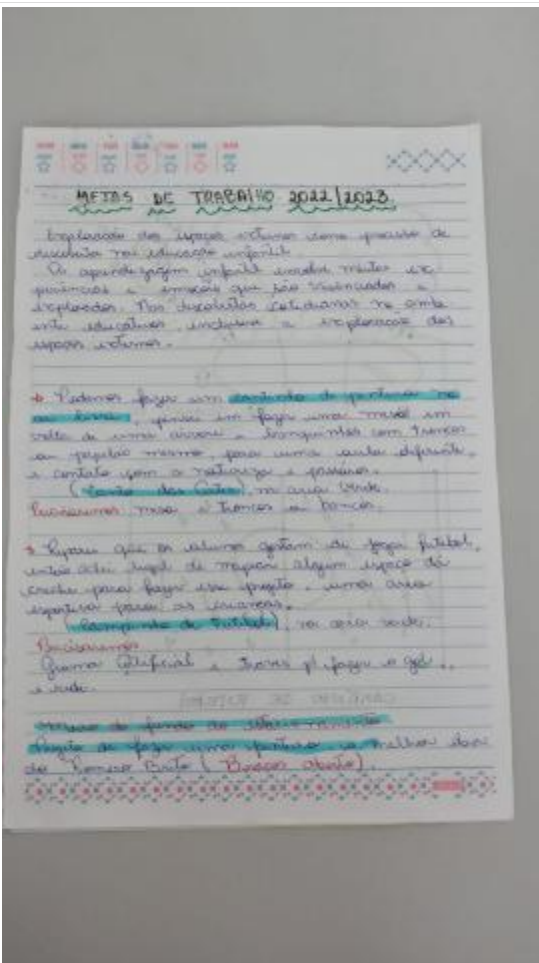 METAS DE TRABALHO 2022/2023.
Exploração dos espaços externos como processo de
descoberta na educação infantil.
As aprendizagem infantil envolve muitas ex
periências e emoções que são vivenciadas e
exploradas. Nas descobertas cotidianas no ambi
ente educativos, inclusive a exploração dos
espaços externos.
Podemos fazer um cantinho de pintura no
ar livre, pensei em fazer uma mesa em
volta de uma árvore e banquinhos com troncos
ou papelão mesmo, para uma aula diferente,
e contato com a natureza e pássaros.
(Canto das Artes), na área verde.
Precisaremos mesa e troncos ou bancos.
Reparei que os alunos gostam de jogar futebol,
então achei legal de mapear algum espaço da
creche para fazer esse projeto, uma área
esportiva para as crianças.
(Campinho de Futebol), na área verde.
Precisaremos
Grama Artificial e traves p/ fazer o gol,
e rede.
do fundo do estacionamento
Projeto de fazer uma pintura a melhor
do Romero Brito (Braços aberto).